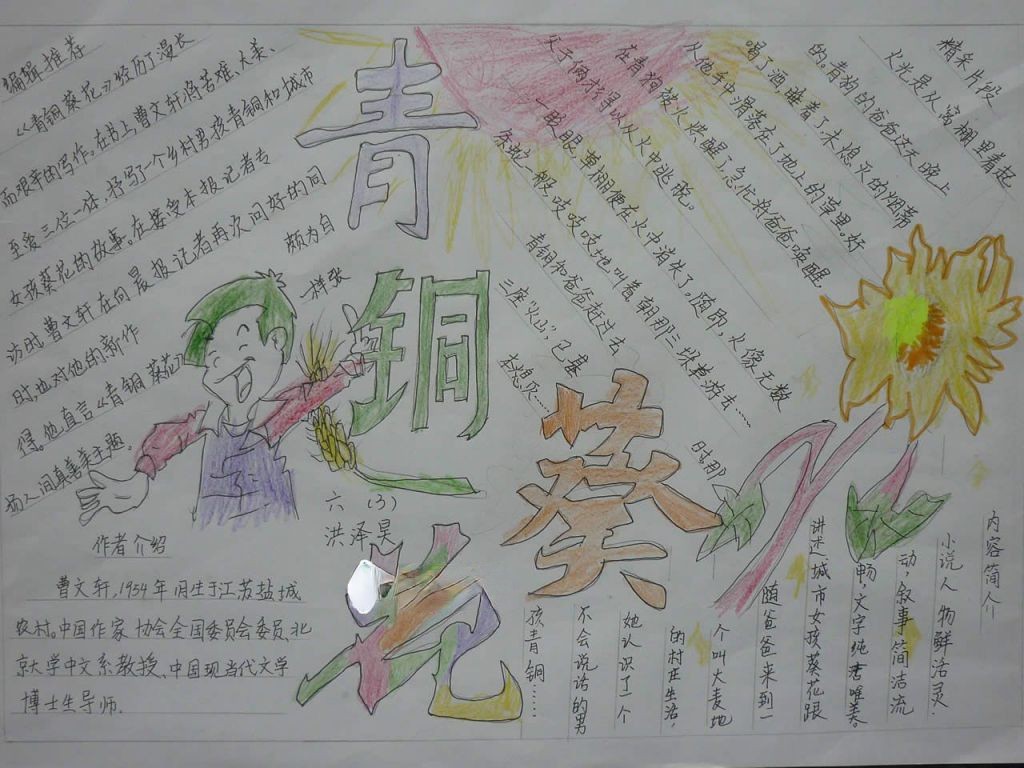 青铜葵花
编辑推荐
《青铜葵花》经历了漫长
而艰辛的写作。在书上曹文轩将苦难、大美、
至爱三位一体,抒写了一个乡村男孩青铜和城市
女孩葵花的故事。在接受本报记者专
访时曹文轩在向晨报记者再次问好的同
时,也对他的新作
颇为自
得。他直言《青铜葵花》
一样张
扬人间真善美主题。
六(3)
洪泽昊
作者介绍
曹文轩,1954年1月生于江苏盐城
农村。中国作家协会全国委员会委员,北
京大学中文系教授、中国现当代文学
博士生导师.
精采片段
火光是从窝棚里着起
的,青狗的爸爸这天晚上
喝了酒,睡着了,未熄灭的烟蒂
从他手中滑落在了地上的草里。好
在青狗被火烘醒了,急忙将爸爸唤醒,
父子俩才得以从火中逃脱。
一眨眼,草棚便在火中消失了,随即,火像无数
条蛇一般,吱吱吱地叫着,朝那三垛茅草游去……
青铜和爸爸赶过去
时,那
三座"火山",已基
本熄灭……
内容简介
小说人物鲜活灵
动,叙事简洁流
畅,文字纯净唯美,
讲述城市女孩葵花跟
随爸爸来到一
个叫大麦地
的村庄生活,
她认识了一个
不会说话的男
孩青铜……